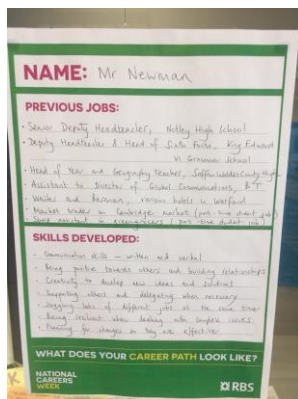 NAME: Mr Newman
PREVIOUS JOBS:
• Senior Deputy Headteacher, Notley High School
• Deputy Headteacher & Head of Sixth Form, King Edward
VI Grammar School
• Head of Year and Geography Teacher, Saffron Walden County High
• Assistant to Director of Global Communications, BT
• Waiter and Barman, various hotels in Watford
• Market trader in Cambridge market (part-time student job)
• Shop assistant in greengrocers (part-time student job)
SKILLS DEVELOPED:
• Communication skills - written and verbal
• Being positive towards others and building relationships
• Creativity to develop new ideas and solutions
• Supporting others and delegating when necessary
• Juggling lots of different jobs at the same time
• Being resilient when dealing with complex issues
• Planning for changes so they are effective
WHAT DOES YOUR CAREER PATH LOOK LIKE?
NATIONAL
CAREERS
WEEK
RBS